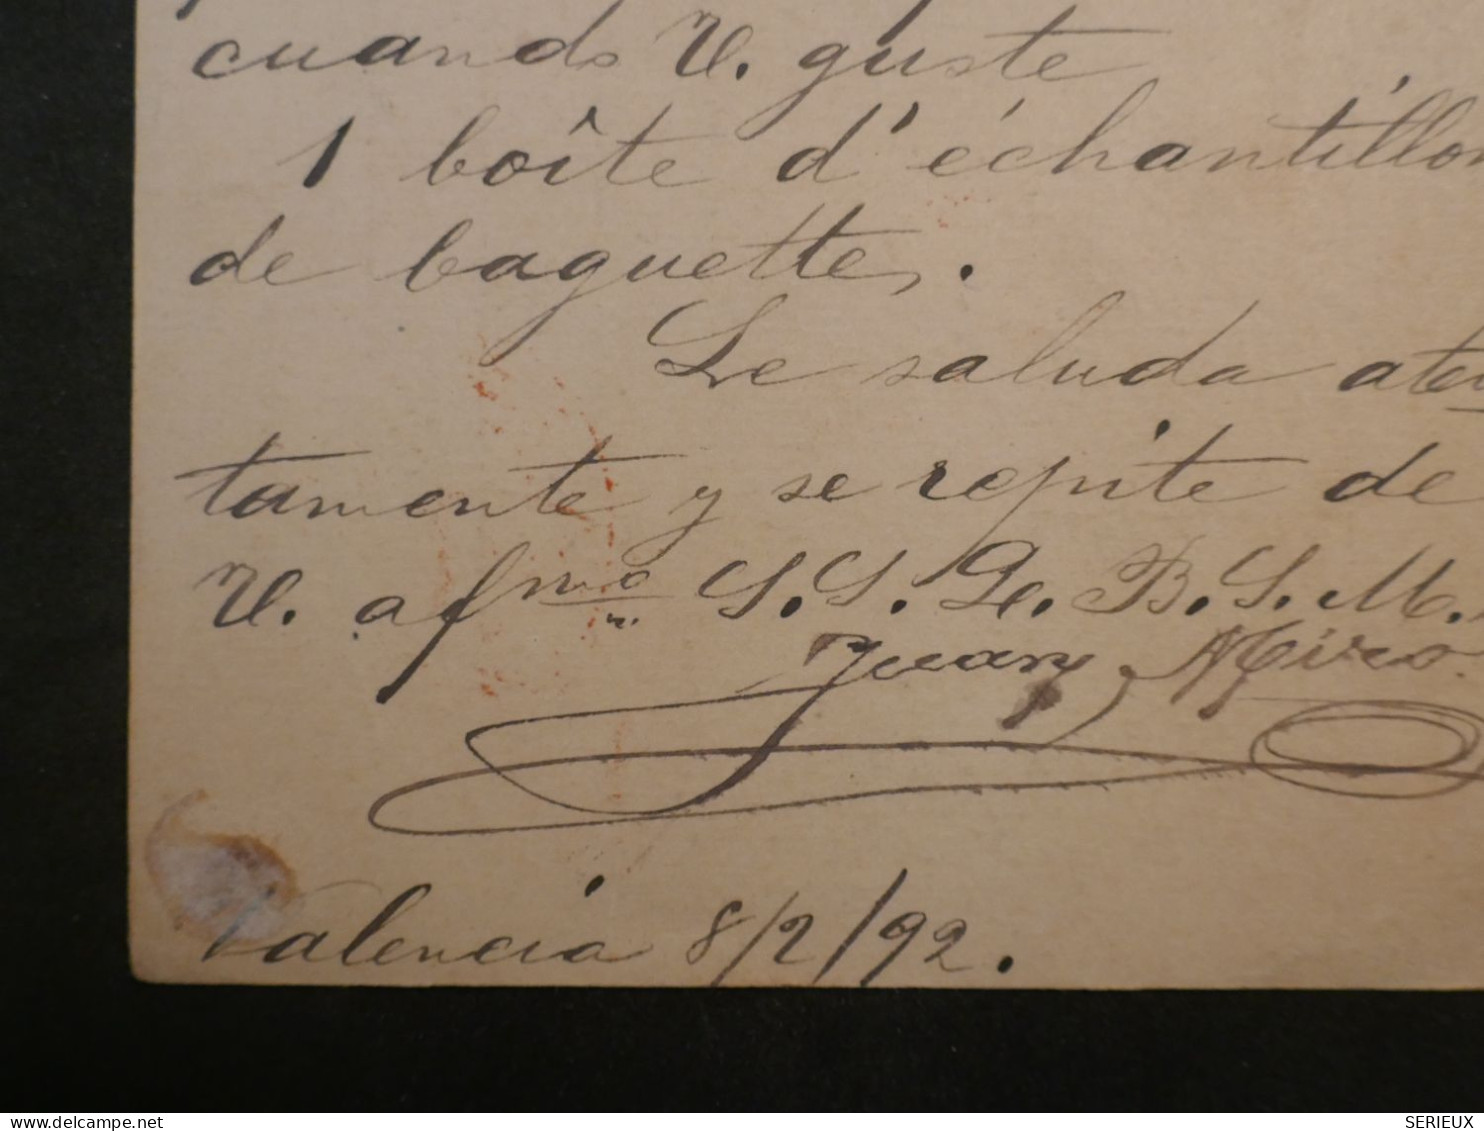 cuando V. guste
1 boîte d'échantillon
de baguettes.
Le saluda aten
tamente y se repite de
V. afmo S. S. Q. B. S. M.
Juan Miro
Valencia 8/2/92.
delcampe.net
SERIEUX